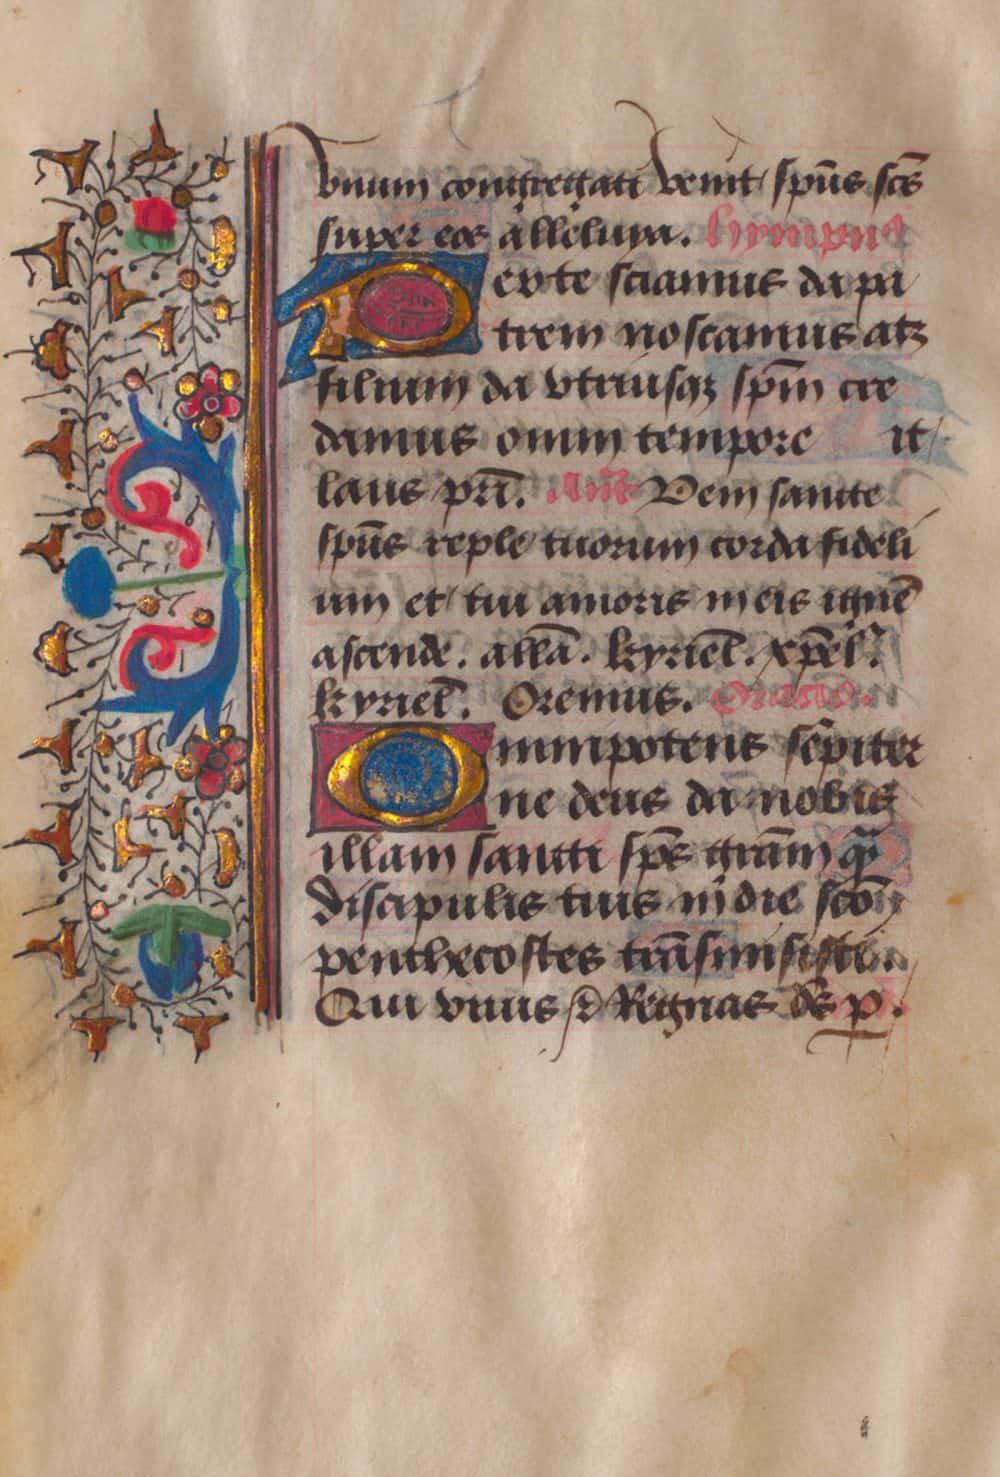 vnum congregati venit spūs scs̄
super eos alleluya. hympnꝰ
Per te sciamus da pa
trem noscamus atꝫ
filium da vtriusqꝫ spm̄ cre
damus omni tempore it
laus pri̅. An̄t Veni sancte
spūs reple tuorum corda fideli
um et tui amoris in eis ignē
ascende. allā. kyriel̄. xpēl.
kyriel̄. Oremus. Oratio.
Omnipotens sēpiter
ne deus da nobis
illam sancti sps̄ grām quā
discipulis tuis in die scō
penthecostes trāsmisisti.
Qui viuis ⁊ Regnas ds̄ p.